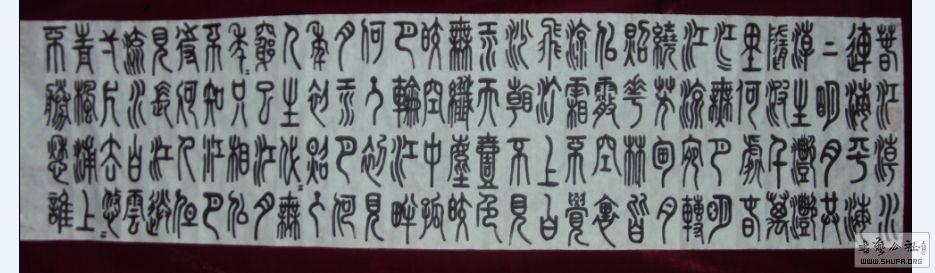 春江潮水
連海平海
上明月共
潮生灩灩
隨波千萬
里何處春
江無月明
江流宛轉
繞芳甸月
照花林皆
似霰空裏
流霜不覺
飛汀上白
沙看不見
江天壹色
無纖塵皎
皎空中孤
月輪江畔
何人初見
月江月何
年初照人
人生代〻無
窮已江月
年〻只相似
不知江月
待何人但
見長江送
流水白雲
一片去悠〻
青楓浦上
不勝愁誰
書法公社
WWW.SHUFA.ORG